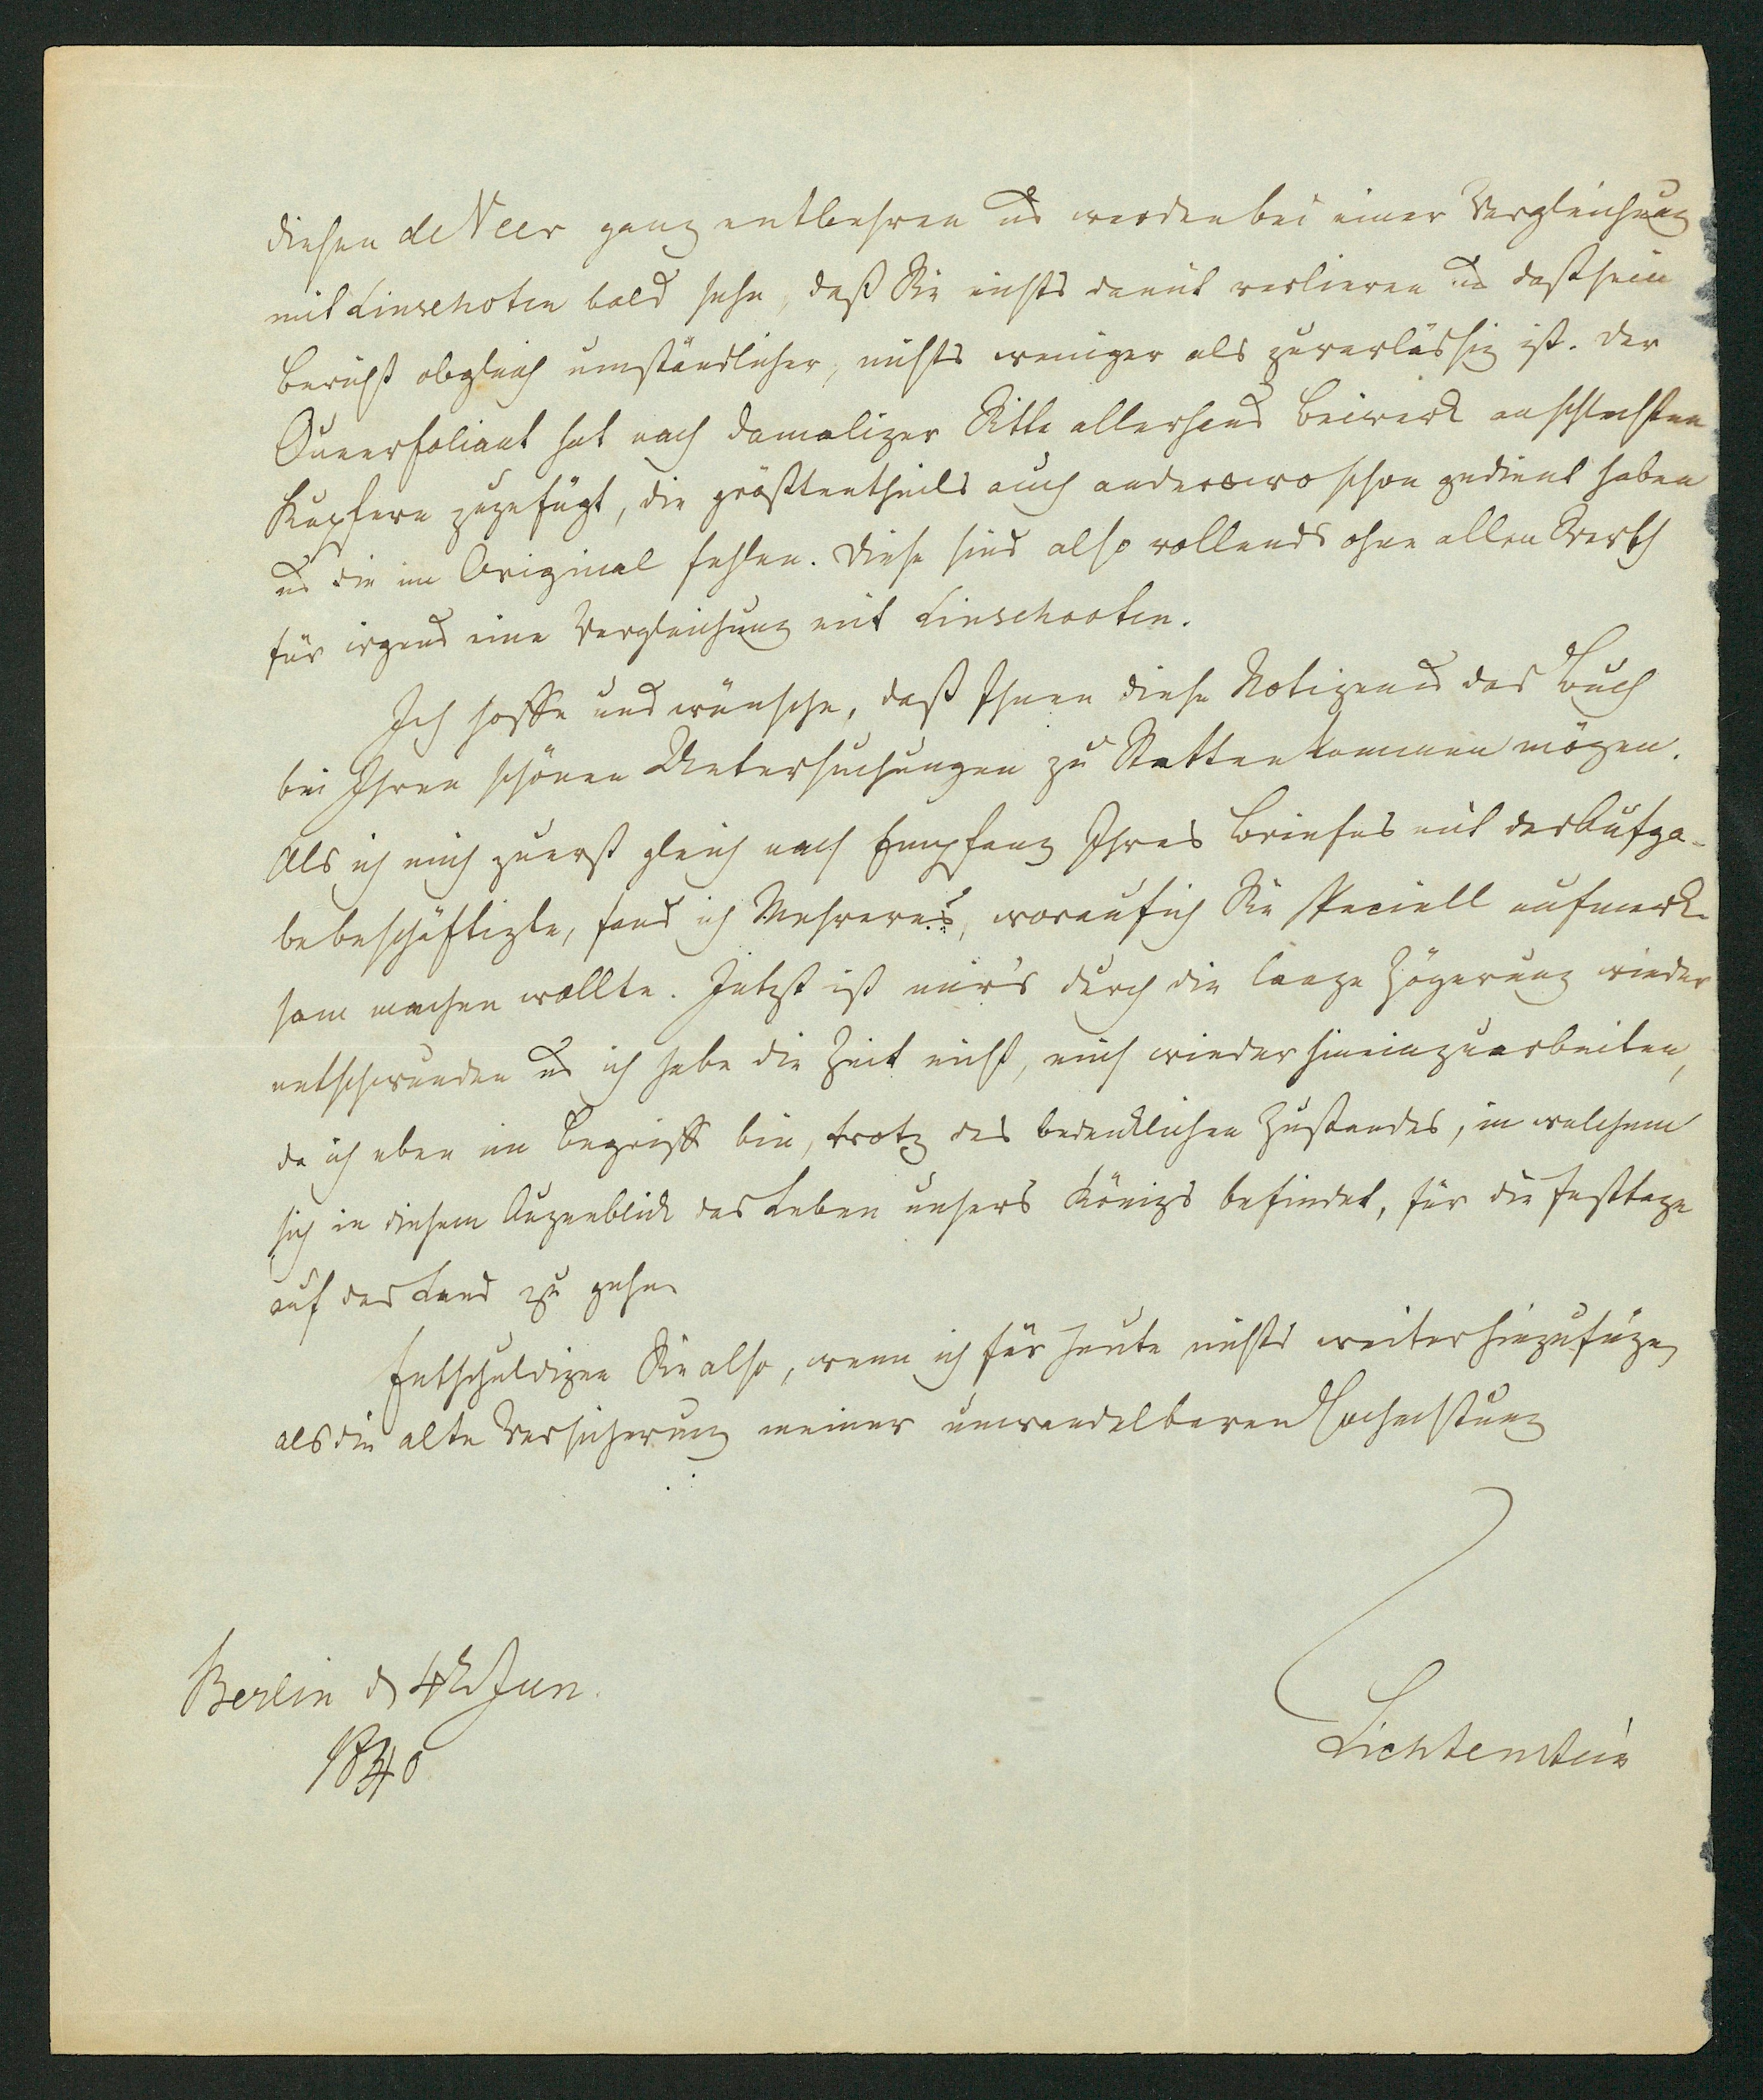 diesen de Veer ganz entbehren und werden bei einer Vergleichung
mit Linschoten bald sehn, daß Sie nichts damit verlieren und daß sein
Bericht obgleich umständlicher, nichts weniger als zuverlässig ist. Der
Queerfoliant hat nach damaliger Sitte allerhand Beiwerk an schlechten
Kupfern zugefügt, die größtentheils auch anderswo schon gedient haben
und die im Original fehlen. Diese sind also vollends ohne allen Werth
für irgend eine Vergleichung mit Linschooten.
Ich hoffe und wünsche, daß Ihnen diese Notizen und das Buch
bei Ihren schönen Untersuchungen zu Statten kommen mögen.
Als ich mich zuerst gleich nach Empfang Ihres Briefes mit der Aufga-
be beschäftigte, fand ich Mehreres, worauf ich Sie speciell aufmerk-
sam machen wollte. Jetzt ist mir's durch die lange Zögerung wieder
entschwunden und ich habe die Zeit nicht, mich wieder hineinzuarbeiten,
da ich eben im Begriff bin, trotz des bedenklichen Zustandes, in welchem
sich in diesem Augenblick das Leben unsers Königs befindet, für die Festtage
auf das Land zu gehn
Entschuldigen Sie also, wenn ich für heute nichts weiter hinzufüge,
als die alte Versicherung meiner unwandelbaren Hochachtung
Berlin d 4t Jun.
1840
Lichtenstein